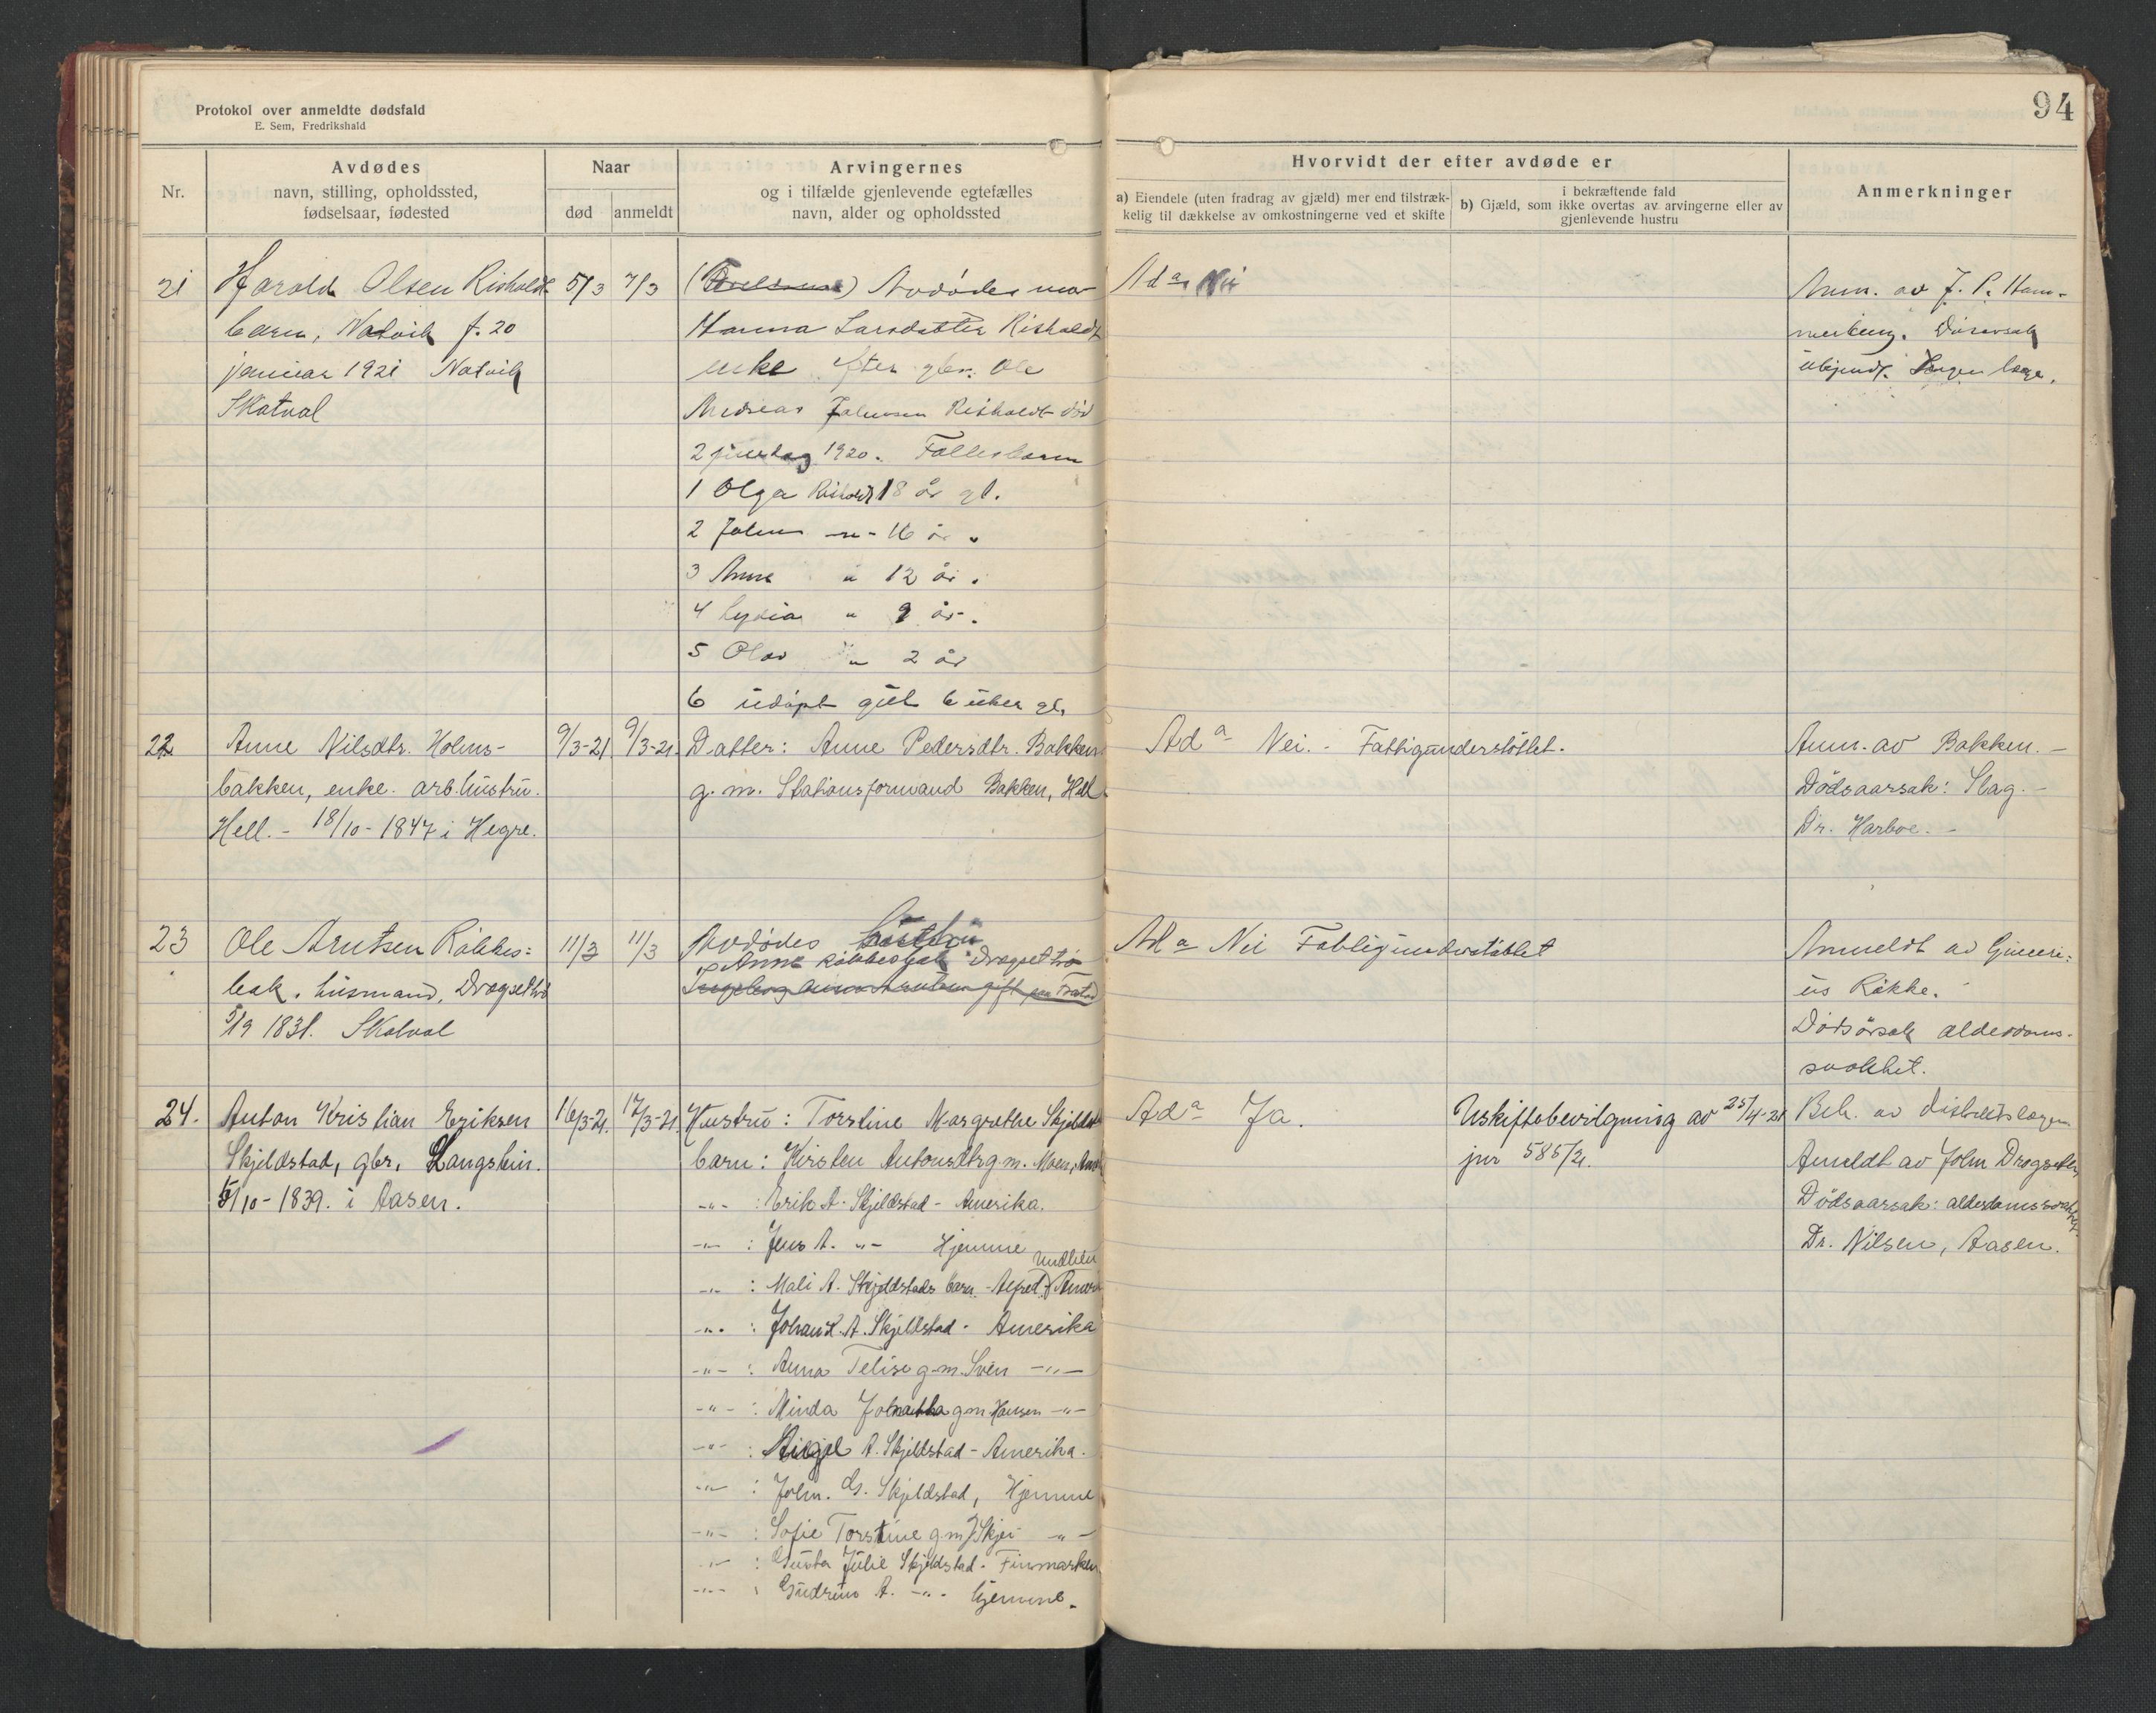 Protokol over anmeldte dødsfald
E. Sem, Fredrikshald
94
Nr.
Avdødes
navn, stilling, opholdssted,
fødselsaar, fødested
Naar
død
anmeldt
Arvingernes
og i tilfælde gjenlevende egtefælles
navn, alder og opholdssted
Hvorvidt der efter avdøde er
a) Eiendele (uten fradrag av gjæld) mer end tilstræk-
kelig til dækkelse av omkostningerne ved et skifte
i bekræftende fald
b) Gjæld, som ikke overtas av arvingerne eller av
gjenlevende hustru
Anmerkninger
21
Harold Olsen Risholdt
barn, Natvik f. 20
januar 1921 Natvik
Skatval
5/3
7/3
Avdødes mor
Hanna Larsdatter Risholdt
enke efter gbr. Ole
Andreas Johnsen Risholdt død
2 juledag 1920. Fællesbarn
1 Olga Risholdt 18 år gl.
2 John -"- 16 år "
3 Anna " 12 år "
4 Lydia " 9 år.
5 Olav " 2 år
6 udøpt gut 6 uker gl.
Ad a Nei
Anm. av J. P. Ham-
merberg. Dødsårsak
ubejendt. Ingen læge.
22
Anne Nilsdtr. Holms-
bakken, enke. arb.hustru.
Hell. - 18/10 - 1847 i Hegre.
9/3-21.
9/3-21.
Datter: Anne Pedersdtr. Bakken
g. m. Stationsformand Bakken, Hell
Ad a Nei. - Fattigunderstöttet.
Anm. av Bakken. -
Dödsaarsak: Slag. -
Dr. Harboe. -
23
Ole Arntsen Røkkes=
bak. husmand, Dragsettrø
5/9 1831. Skatval
11/3
11/3
Avdødes
Anna Røkkesbak Dragsettrø
Ad a Nei Fattigunderstøttet
Anmeldt av
Røkke.
Dødsårsak alderdoms-
svakhet.
24.
Anton Kristian Eriksen
Skjeldstad, gbr, Langstein.
5/10 - 1839. i Aasen.
16/3-21.
17/3-21.
Hustru: Torstine Margrethe Skjeldst
barn: Kirsten Antonsdtr g.m. Moen, Am
-"- : Erik A. Skjeldstad - Amerika.
-"- : Jens A. -"- Hjemme
-"- : Mali A. Skjeldstads barn - Alfred Amer
-"- : Johan K. A. Skjeldstad - Amerika
-"- : Anna Telise g.m. Sven -"-
-"- : Minda g.m. Hansen -"-
-"- : A. Skjeldstad - Amerika.
-"- : John. A. Skjeldstad, Hjemme
-"- : Sofie Torstine g.m. J. Skjei -"-
-"- : Gusta Julie Skjeldstad - Finmarken
-"- : Gudrun A. -"- hjemme.
Ad a Ja.
Uskiftebevilgning av 25/4-21
jnr 585/21.
Beh. av distriktslægen
Anmeldt av John Dragseth,
Dödsaarsak: alderdomssvakhet
Dr. Nilsen, Aasen.